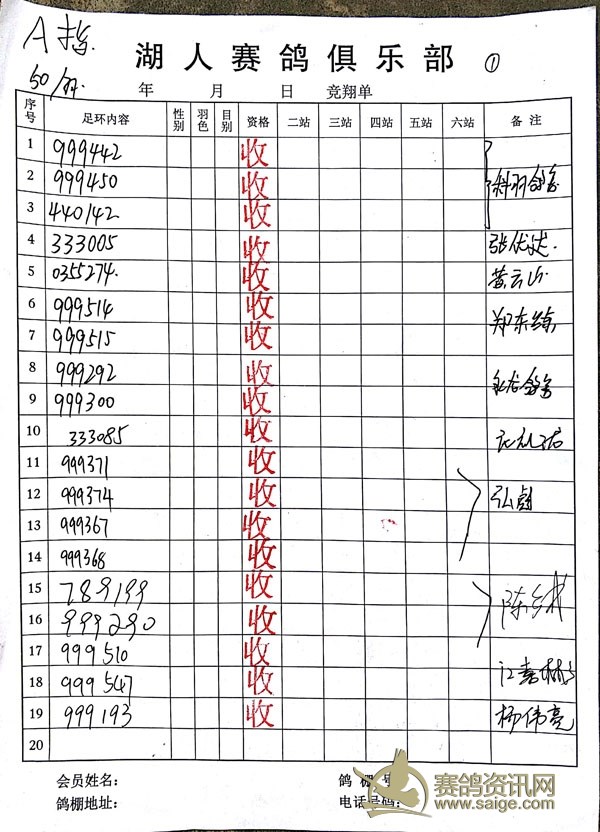 A
湖人赛鸽俱乐部 ①
50/羽.
年 月 日 竞翔单
序号 足环内容 性别 羽色 目别 资格 二站 三站 四站 五站 六站 备注
1 999442 收
2 999450 收
3 440142 收
4 333005 收
5 0355274. 收 黄云山
6 999514 收
7 999515 收
8 999292 收
9 999300 收
10 333085 收
11 999371 收
12 999374 收
13 999367 收
14 999368 收
15 789199 收
16 999290 收
17 999510 收
18 999547 收
19 999193 收 杨伟亮
20
会员姓名： 鸽棚 号
鸽棚地址： 电话号码：
赛鸽资讯网
www.saige.com